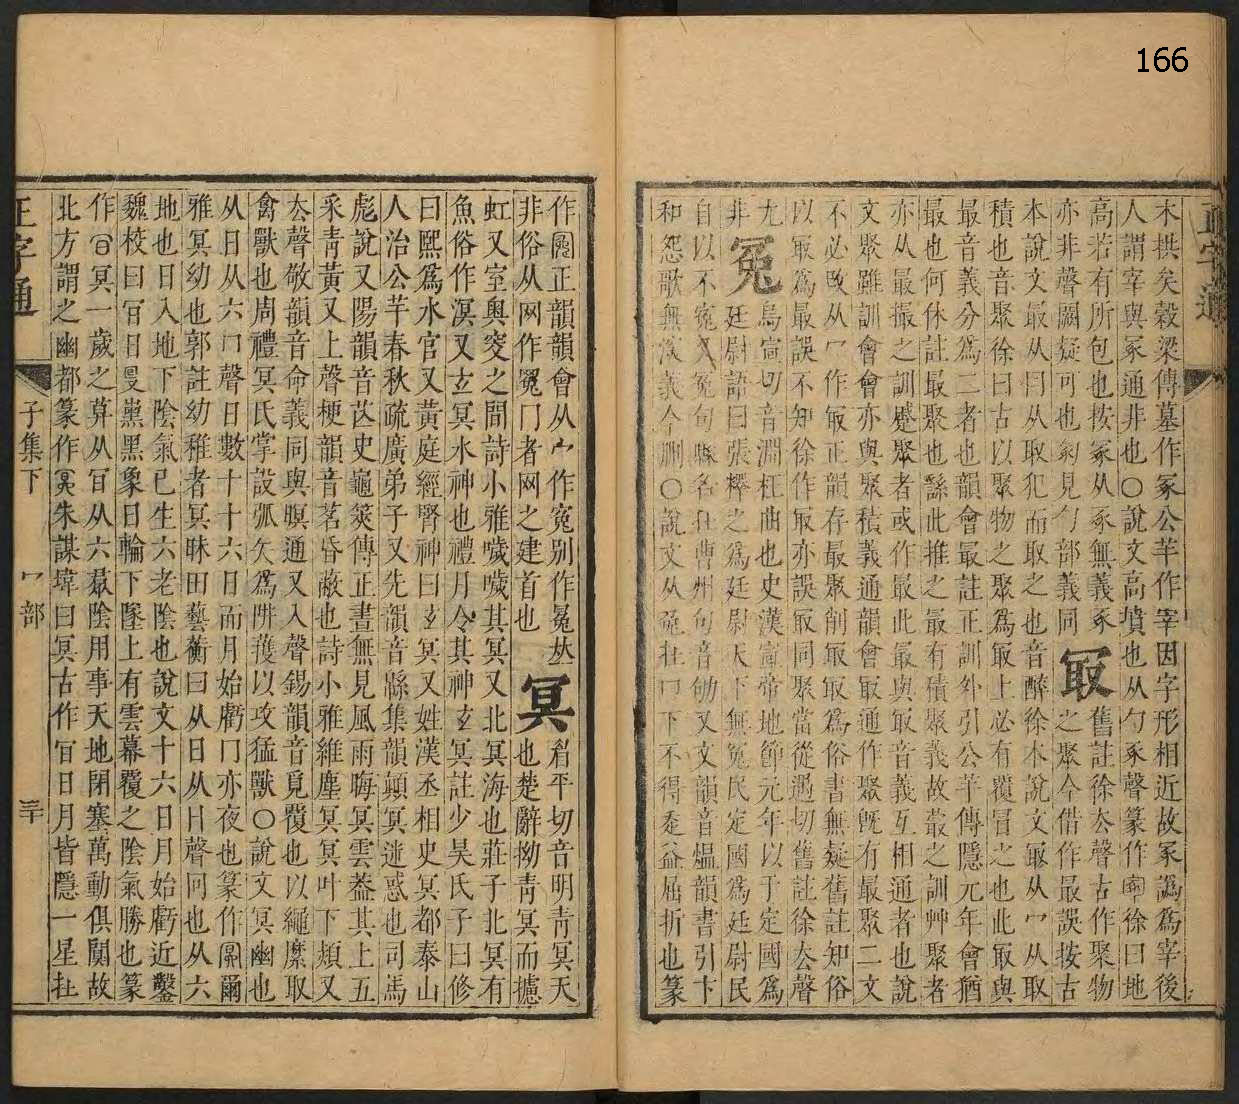 166
正字通
木拱矣穀梁傳墓作冢公羊作宰因字形相近故冢譌爲宰後
人謂宰與冢通非也○說文高墳也从勹豖聲篆作徐曰地
高若有所包也按冢从豕無義豖
亦非聲闕疑可也彖見勹部義同
冣
舊註徐去聲古作聚物
之聚今借作最誤按古
本說文最从曰从取犯而取之也音醉徐本說文冣从冖从取
積也音聚徐曰古以聚物之聚爲冣上必有覆冒之也此冣與
最音義分爲二者也韻會最註正訓外引公羊傳隱元年會猶
最也何休註最聚也繇此推之最有積聚義故蕞之訓艸聚者
亦从最撮之訓蹙聚者或作最此最與冣音義互相通者也說
文聚雖訓會會亦與聚積義通韻會冣通作聚旣有最聚二文
不必攺从冖作冣正韻存最聚削冣冣爲俗書無疑舊註知俗
以冣爲最誤不知徐作冣亦誤冣同聚當從遇切舊註徐去聲
尤
非
冤
烏宣切音淵枉曲也史漢宣帝地節元年以于定國爲
廷尉語曰張釋之爲廷尉天下無冤民定國爲廷尉民
自以不寃又冤句縣名在曹州句音劬又文韻音熅韻書引卞
和怨歌無深義今刪○說文从兔在冂下不得走益屈折也篆
作正韻韻會从宀作寃别作寃夶
非俗从网作冤冂者网之建首也
冥
眉平切音明青冥天
也楚辭拗青冥而攄
虹又室奧窔之閒詩小雅噦噦其冥又北冥海也莊子北冥有
魚俗作溟又玄冥水神也禮月令其神玄冥註少昊氏子曰修
曰熙爲水官又黃庭經腎神曰玄冥又姓漢丞相史冥都泰山
人治公羊春秋疏廣弟子又先韻音緜集韻顛冥迷惑也司馬
彪說又陽韻音苁史龜筴傳正晝無見風雨晦冥雲葢其上五
采青黃又上聲梗韻音茗昏蔽也詩小雅維塵冥冥叶下熲又
去聲敬韻音命義同與暝通又入聲錫韻音覓覆也以繩縻取
禽獸也周禮冥氏掌設弧矢爲阱擭以攻猛獸○說文冥幽也
从日从六冖聲日數十十六日而月始虧冂亦夜也篆作爾
雅冥幼也郭註幼稚者冥昧田藝蘅曰从日从冂聲同也从六
地也日入地下陰氣已生六老陰也說文十六日月始虧近鑿
魏校曰冥黑象日輪下墜上有雲幕覆之陰氣勝也篆
作冥一歲之算从六羣陰用事天地閉塞萬動俱闃故
北方謂之幽都篆作朱謀㙔曰冥古作日月皆隱一星在
正字通
子集下
冖部
三十